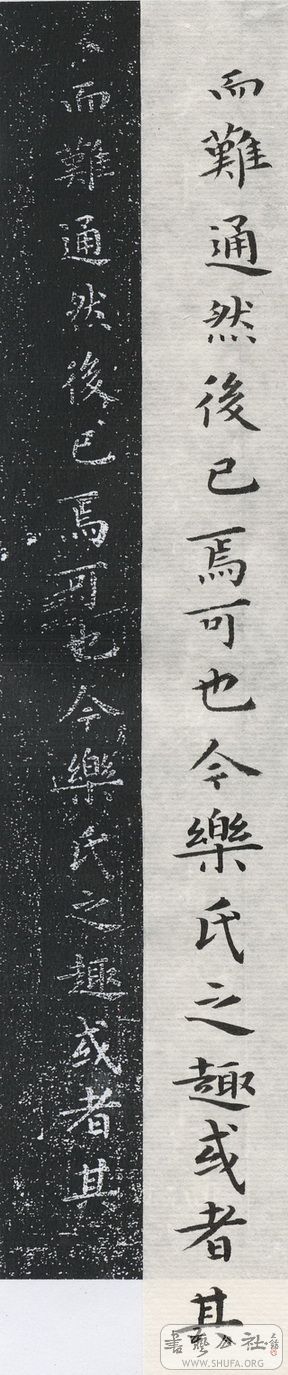 而難通然後已焉可也今樂氏之趣或者其
而難通然後已焉可也今樂氏之趣或者其
書藝公社
WWW.SHUFA.ORG